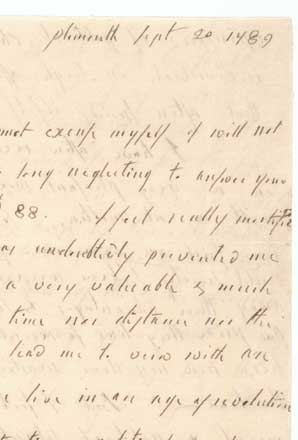 plimouth Sept 20 1789
not excuse myself I will not
long neglecting to answer your
88. I feel really mortifi
as undoubtedly prevented me
a very valuable & much
time nor distance nor the
lead me to view with an
live in an age of revolution